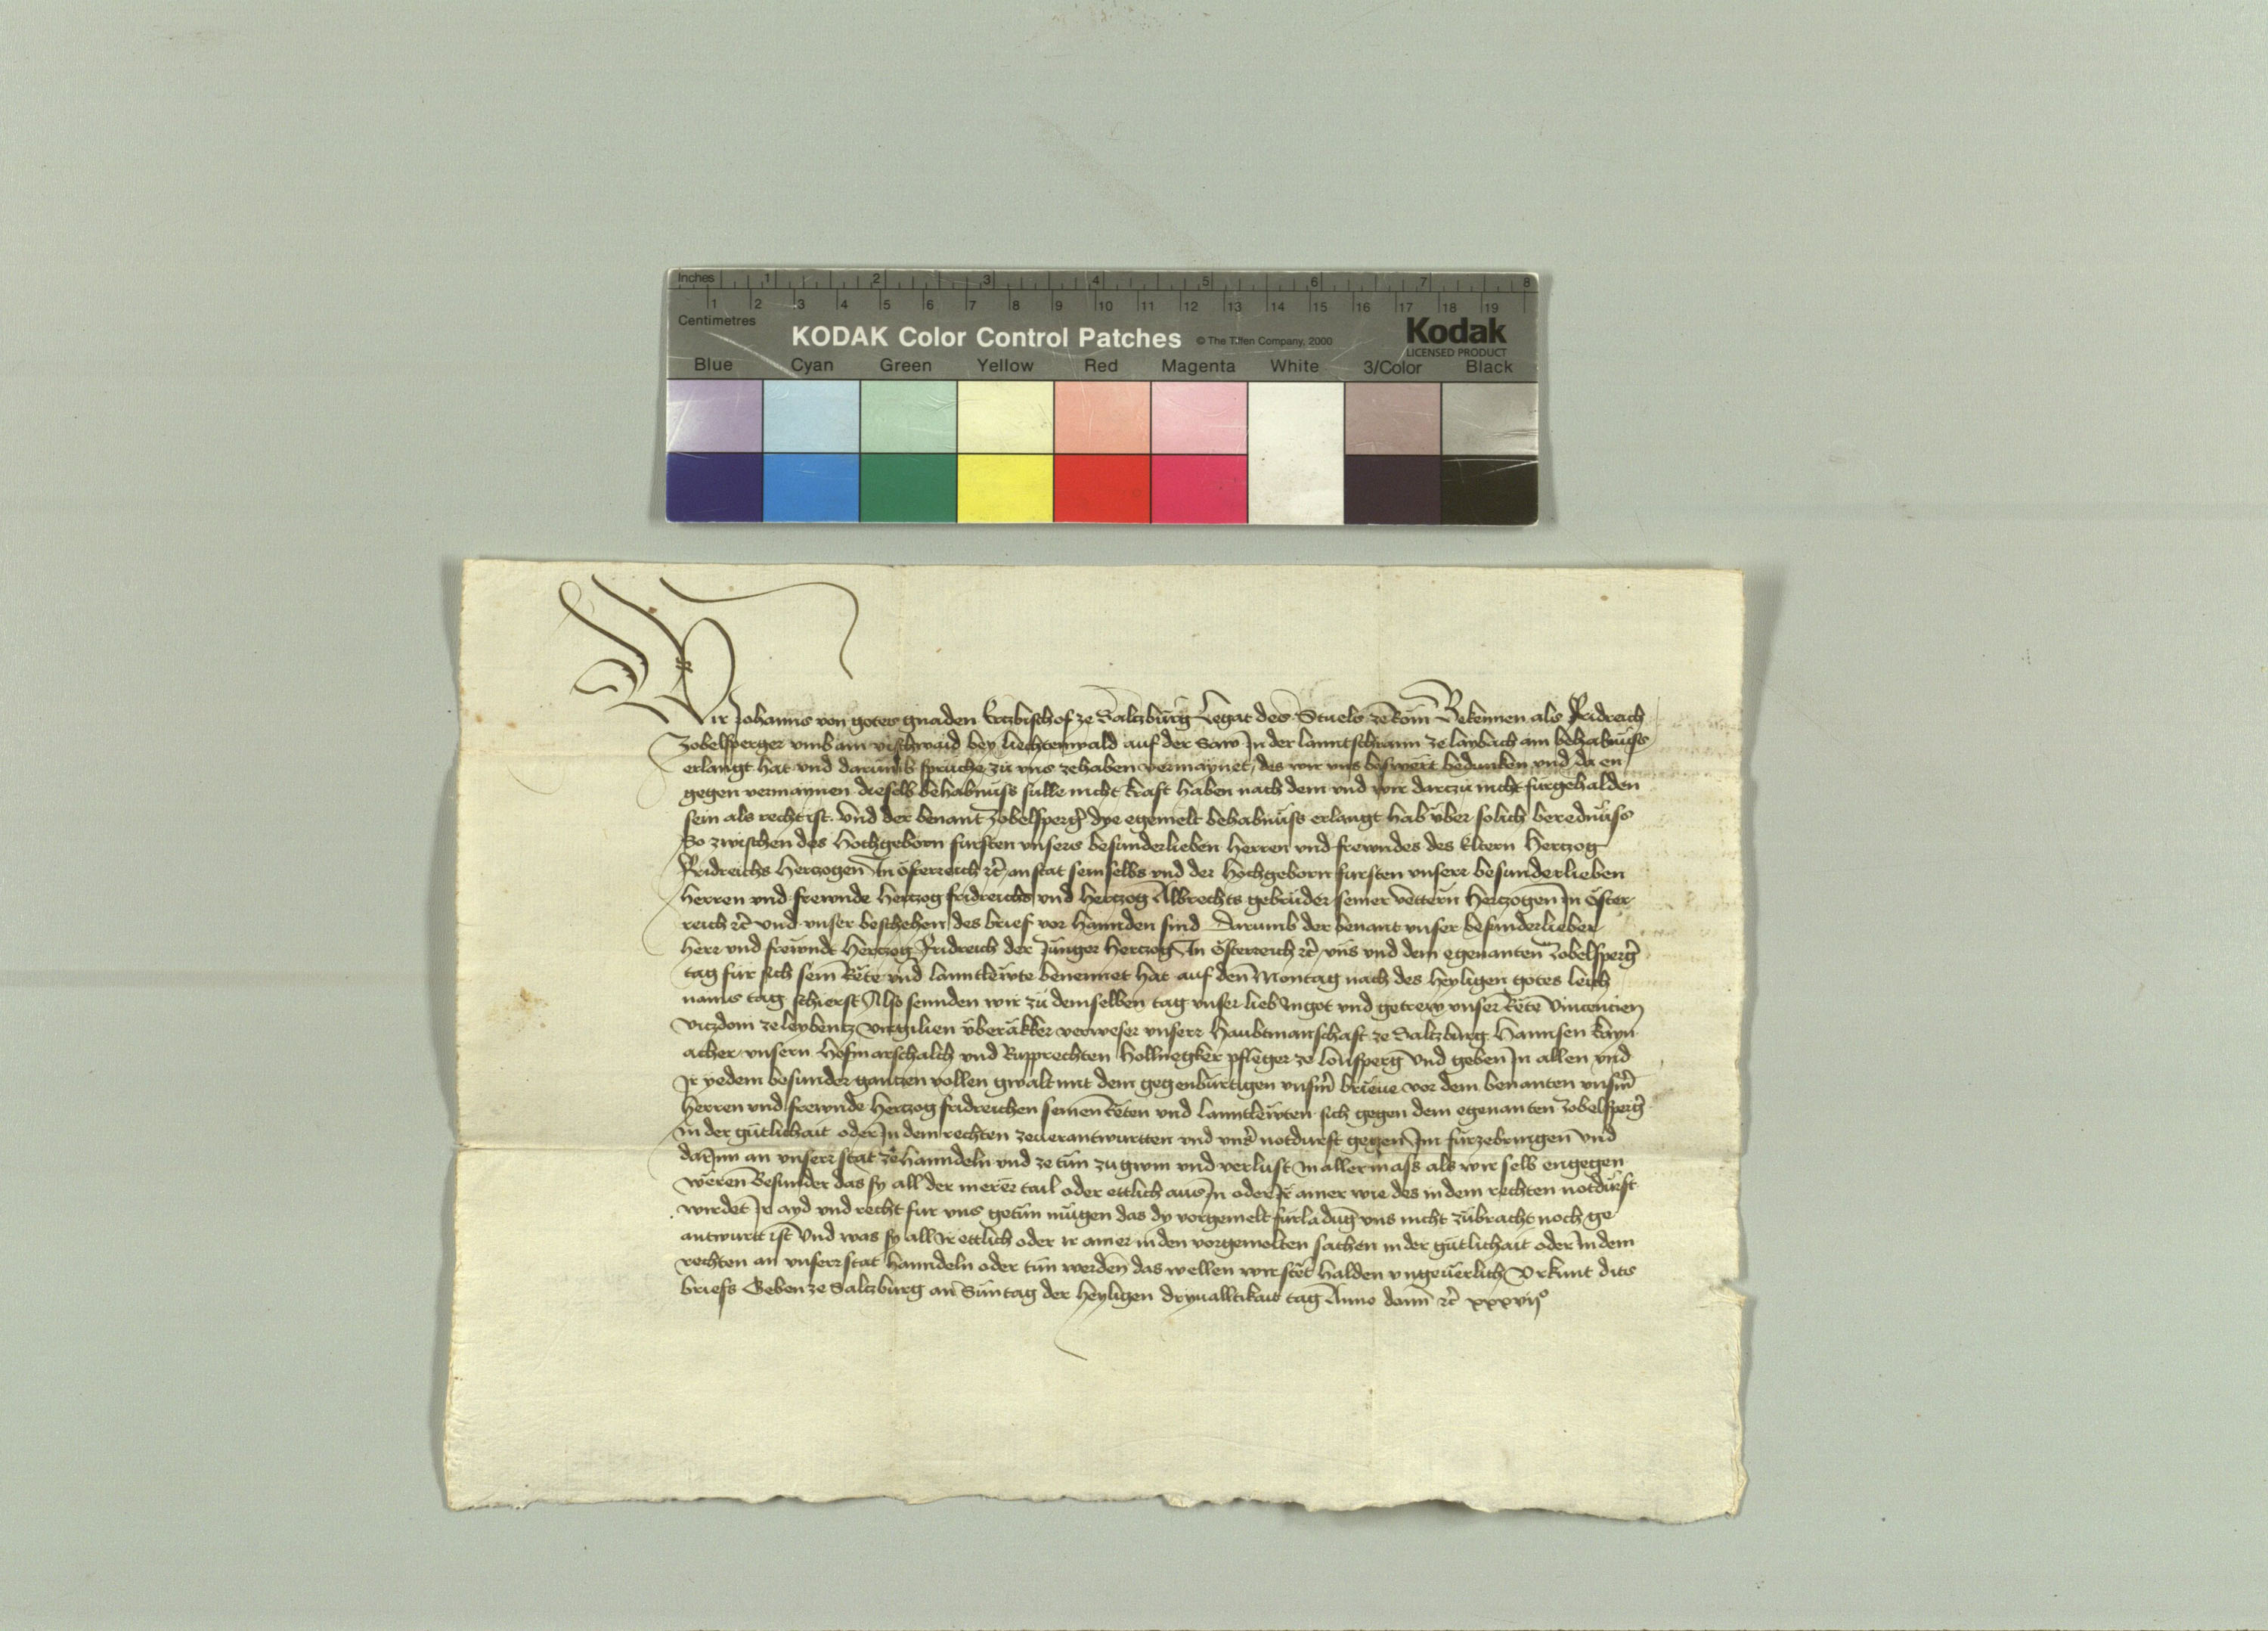 Inches 1 2 3 4 5 6 7 8
1 2 3 4 5 6 7 8 9 10 11 12 13 14 15 16 17 18 19
Centimetres
KODAK Color Control Patches © The Tiffen Company, 2000 Kodak
LICENSED PRODUCT
Blue Cyan Green Yellow Red Magenta White 3/Color Black
Wir Johanns von gotes gnaden Ertzbischof ze Saltzburg Legat des Stuels ze Rom Bekennen als Fridreich
Zobelsperger vmb ain vischwaid bey liechtenwald auf der Saw In der lanntschrann ze laybach ain behabnüss
erlangt hat vnd darumb sprüche zu vns zehaben vermaynet, des wir vns beswert bedunken vnd da en
gegen vermaynen dieselb behabnuss sulle nicht kraft haben nach dem vnd wir dartzu nicht fürgehalden
sein als recht ist. Vnd der benant Zobelsperg̃ dye egemelt behabnüss erlangt hab vber solich berednüss
So zwischen des Hochgeborn fursten vnsers besunderlieben Herren vnd frewndes des Eltern Hertzog
Fridreichs Hertzogen In Österreich ꝛc̃ an stat sein selbs vnd der Hochgeborn fursten vnserr besunderlieben
herren vnd frewnde Hertzog fridreichs vnd Hertzog Albrechts gebrüder seiner vettern Hertzogen In Öster
reich ꝛc̃ vnd vnser beschehen, des brief vor hannden sind Darumb der benant vnser besunderlieber
herr vnd frewndt Hertzog Fridreich der Junger Hertzog In Österreich ꝛc̃ vns vnd dem egenanten Zobelsperg̃
tag für sich sein Rëte vnd lanntlewte benennet hat auf den Montag nach des heyligen gotes leich
nams tag schierst Also sennden wir zu demselben tag vnser lieb In got vnd getrew vnser Rëte Vincencien
Vitzdom ze leybentz Virgilien Überäkker verweser vnserr Haubtmanschaft ze Saltzburg Hannsen kayn
acher vnsern Hofmarschalch vnd Rupprechten Hollnegker pfleger ze lonsperg Vnd geben In allen vnd
Ir yedem besunder gantzen vollen gwalt mit dem gegenbürtigen vnsm̃ brieue vor dem benanten vnsm̃
herren vnd frewnde Hertzog fridreichen seinen Rëten vnd lanntlewten sich gegen dem egenanten Zobelsperg̃
in der gütlichait oder In dem rechten zeuerantwurtten vnd vnsr̃ notdurft gegen Im fürzebringen Vnd
darinn an vnserr stat ze hanndeln vnd ze tün zu gwin vnd verlust in allermass als wir selb engegen
wëren Besunder das sy all der merer tail oder ettlich aus In oder Ir ainer wie des in dem rechten notdürft
wirdet Ir ayd vnd recht fur vns getün mügen das dy vorgemelt fürladung vns nicht zübracht noch ge
antwurtt ist Vnd was sy all Ir ettlich oder ir ainer in den vorgemelten sachen in der gütlichait oder In dem
rechten an vnserr stat hanndeln oder tün werden das wellen wir stët halden vngeuerlich Vrkunt ditz
briefs Geben ze Saltzburg an Suntag der heyligen dryualltikait tag Anno domi ꝛc̃ xxxvijº